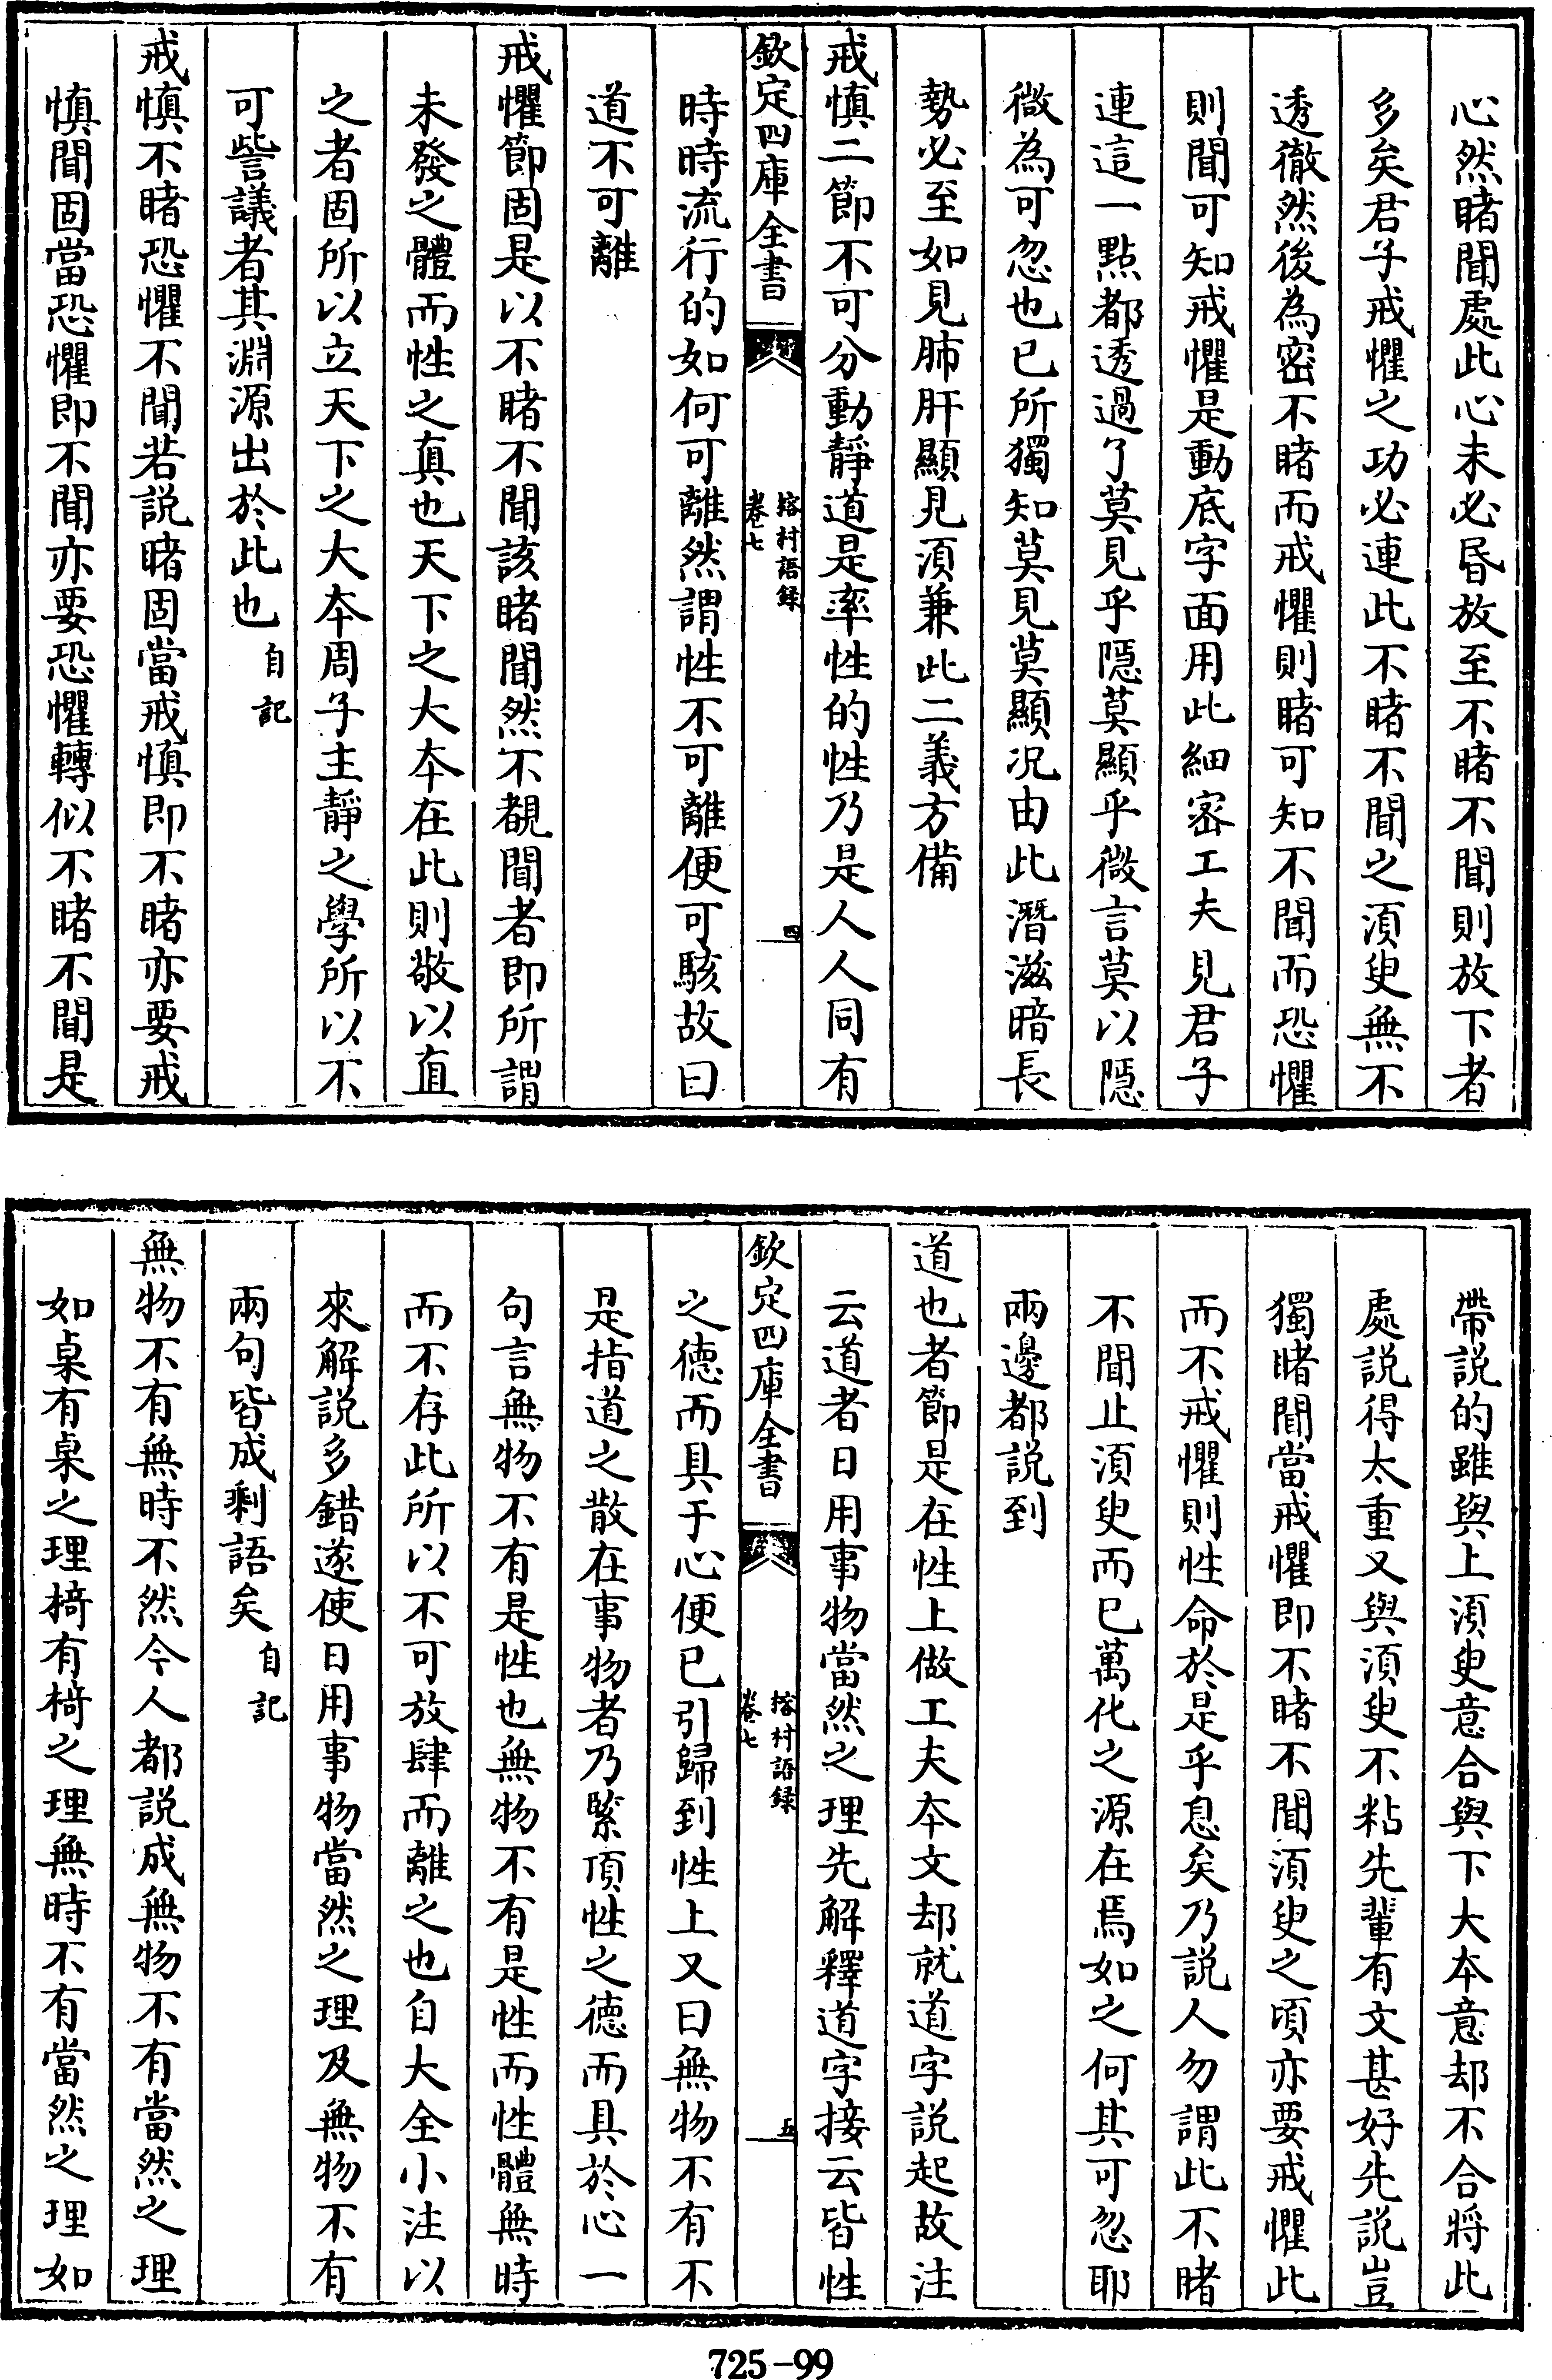 心然睹聞處此心未必昬放至不睹不聞則放下者
多矣君子戒懼之功必連此不睹不聞之須臾無不
透徹然後為密不睹而戒懼則睹可知不聞而恐懼
則聞可知戒懼是動底字面用此細密工夫見君子
連這一點都透過了莫見乎隱莫顯乎微言莫以隱
微為可忽也已所獨知莫見莫顯况由此潛滋暗長
勢必至如見肺肝顯見須兼此二義方備
戒慎二節不可分動靜道是率性的性乃是人人同有
欽定四庫全書
榕村語録
卷七
四
時時流行的如何可離然謂性不可離便可駭故曰
道不可離
戒懼節固是以不睹不聞該睹聞然不覩聞者即所謂
未發之體而性之真也天下之大本在此則敬以直
之者固所以立天下之大本周子主靜之學所以不
可訾議者其淵源出於此也自記
戒慎不睹恐懼不聞若説睹固當戒慎即不睹亦要戒
慎聞固當恐懼即不聞亦要恐懼轉似不睹不聞是
帶説的雖與上須臾意合與下大本意却不合將此
處説得太重又與須臾不粘先輩有文甚好先説豈
獨睹聞當戒懼即不睹不聞須臾之頃亦要戒懼此
而不戒懼則性命於是乎息矣乃説人勿謂此不睹
不聞止須臾而已萬化之源在焉如之何其可忽耶
兩邊都説到
道也者節是在性上做工夫本文却就道字説起故注
云道者日用事物當然之理先解釋道字接云皆性
欽定四庫全書
榕村語録
卷七
五
之德而具于心便已引歸到性上又曰無物不有不
是指道之散在事物者乃緊頂性之德而具於心一
句言無物不有是性也無物不有是性而性體無時
而不存此所以不可放肆而離之也自大全小注以
來解説多錯遂使日用事物當然之理及無物不有
兩句皆成剩語矣自記
無物不有無時不然今人都説成無物不有當然之理
如桌有桌之理椅有椅之理無時不有當然之理如
725-99